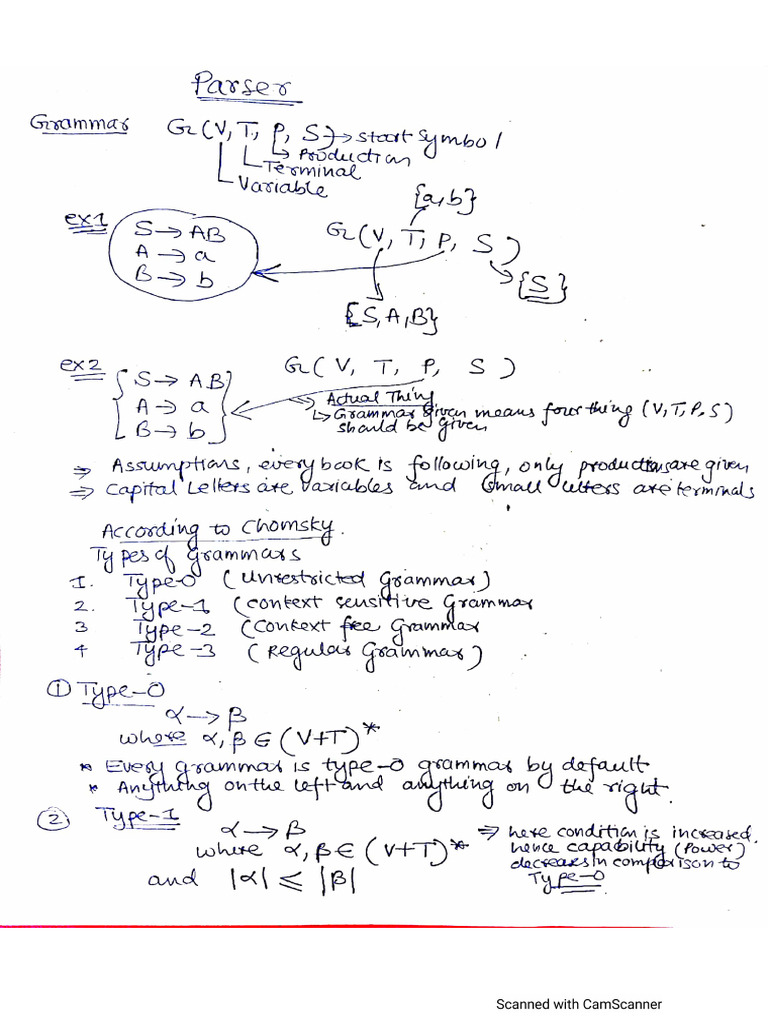 Parser
Grammar G(V, T, P, S) → start symbol
↳ Production
Terminal
Variable
{a,b}
ex1
S → AB
A → a
B → b
G(V, T, P, S)
{S}
{S, A, B}
ex2
S → AB
A → a
B → b
G( V, T, P, S )
⇒ Actual Thing
↳ Grammar given means four thing (V, T, P, S)
should be given
⇒ Assumptions, every book is following, only productions are given
⇒ Capital Letters are variables and small letters are terminals
According to Chomsky.
Types of grammars
1. Type-0 (Unrestricted Grammar)
2. Type-1 (Context sensitive Grammar
3 Type-2 (Context free Grammar
4 Type-3 (Regular Grammar)
① Type-0
α → β
where α, β ∈ (V+T)*
* Every grammar is type-0 grammar by default
* Anything on the left and anything on the right.
② Type-1
α → β
where α, β ∈ (V+T)*
and |α| ≤ |β|
⇒ here condition is increased.
hence capability (Power)
decreases in comparison to
Type-0
Scanned with CamScanner